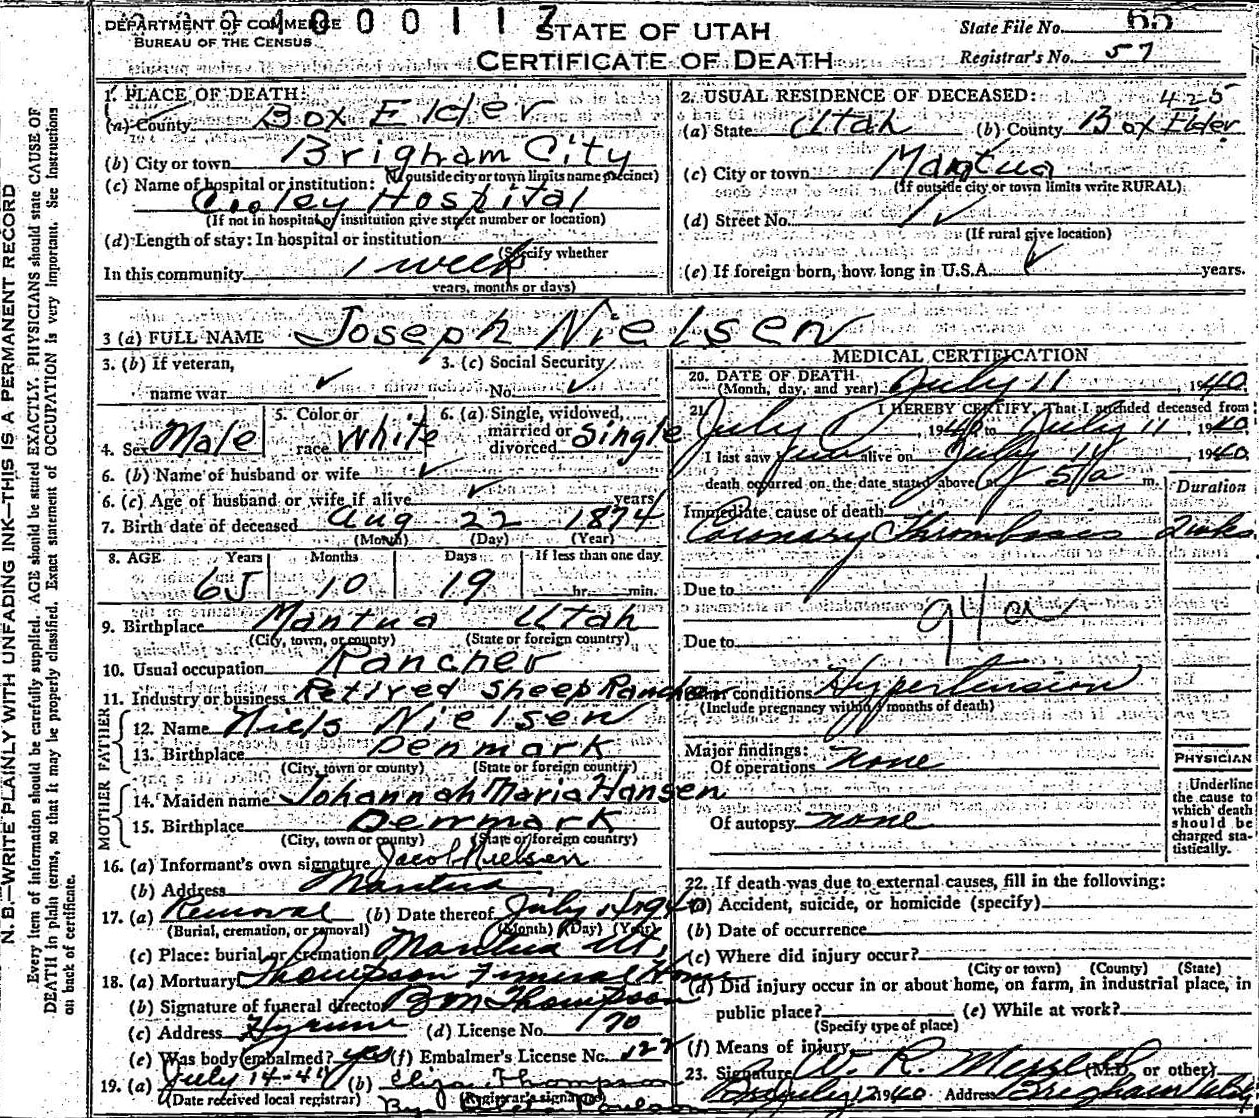 N. B.—WRITE PLAINLY WITH UNFADING INK—THIS IS A PERMANENT RECORD
Every item of information should be carefully supplied. AGE should be stated EXACTLY. PHYSICIANS should state CAUSE OF
DEATH in plain terms, so that it may be properly classified. Exact statement of OCCUPATION is very important. See instructions
on back of certificate.
DEPARTMENT OF COMMERCE
BUREAU OF THE CENSUS
4000117
STATE OF UTAH
CERTIFICATE OF DEATH
State File No. 65
Registrar's No. 57
1. PLACE OF DEATH:
(a) County Box Elder
(b) City or town Brigham City
(If outside city or town limits name precinct)
(c) Name of hospital or institution:
Cooley Hospital
(If not in hospital or institution give street number or location)
(d) Length of stay: In hospital or institution
(Specify whether
In this community 1 week
years, months or days)
2. USUAL RESIDENCE OF DECEASED: 425
(a) State Utah (b) County Box Elder
(c) City or town Mantua
(If outside city or town limits write RURAL)
(d) Street No.
(If rural give location)
(e) If foreign born, how long in U.S.A. ✓ years.
3 (a) FULL NAME Joseph Nielsen
3. (b) If veteran, 3. (c) Social Security
name war ✓ No. ✓
4. Sex Male 5. Color or race White 6. (a) Single, widowed, married or divorced Single
6. (b) Name of husband or wife ✓
6. (c) Age of husband or wife if alive ✓ years
7. Birth date of deceased Aug 22 1874
(Month) (Day) (Year)
8. AGE Years Months Days If less than one day
65 10 19 hr. min.
9. Birthplace Mantua Utah
(City, town, or county) (State or foreign country)
10. Usual occupation Rancher
11. Industry or business Retired Sheep Rancher
FATHER
12. Name Niels Nielsen
13. Birthplace Denmark
(City, town or county) (State or foreign country)
MOTHER
14. Maiden name Johannah Maria Hansen
15. Birthplace Denmark
(City, town or county) (State or foreign country)
16. (a) Informant's own signature Jacob Nielsen
(b) Address Mantua
17. (a) Removal (b) Date thereof July 14 1940
(Burial, cremation, or removal) (Month) (Day) (Year)
(c) Place: burial or cremation Mantua Ut.
18. (a) Mortuary Thompson Funeral Home
(b) Signature of funeral director B M Thompson
(c) Address Hyrum (d) License No. 170
(e) Was body embalmed? yes (f) Embalmer's License No. 122
19. (a) July 14-40 (b) Eliza Thompson
(Date received local registrar) (Registrar's signature)
By
MEDICAL CERTIFICATION
20. DATE OF DEATH
(Month, day, and year) July 11 1940
21. I HEREBY CERTIFY, That I attended deceased from
July, 1940 to July 11, 1940
I last saw alive on July 11, 1940
death occurred on the date stated above at 5/a m.
Duration
Immediate cause of death
Coronary Thrombosis 2 wks.
Due to
94a
Due to
Other conditions Hypertension
(Include pregnancy within 3 months of death)
Major findings:
Of operations none
Of autopsy none
PHYSICIAN
Underline
the cause to
which death
should be
charged sta-
tistically.
22. If death was due to external causes, fill in the following:
(a) Accident, suicide, or homicide (specify)
(b) Date of occurrence
(c) Where did injury occur?
(City or town) (County) (State)
(d) Did injury occur in or about home, on farm, in industrial place, in
public place? (e) While at work?
(Specify type of place)
(f) Means of injury
23. Signature W. R. Merrell (M.D. or other)
Date July 12 1940 Address Brigham Utah